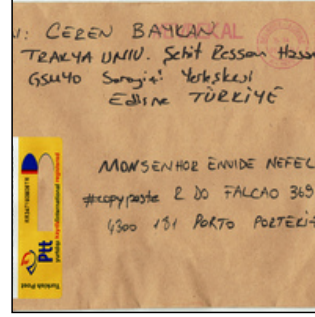 : CEREN BAYKAN
TRAKYA UNIV. Şehit Ressam Hasan
GSUYO Sarayiçi Yerleşkesi
Edirne TÜRKİYE
MONSENHOR ENVIDE NEFEL
#copypaste R DO FALCAO 369
4300 181 PORTO PORTEKİZ
Ptt
Turkish Post